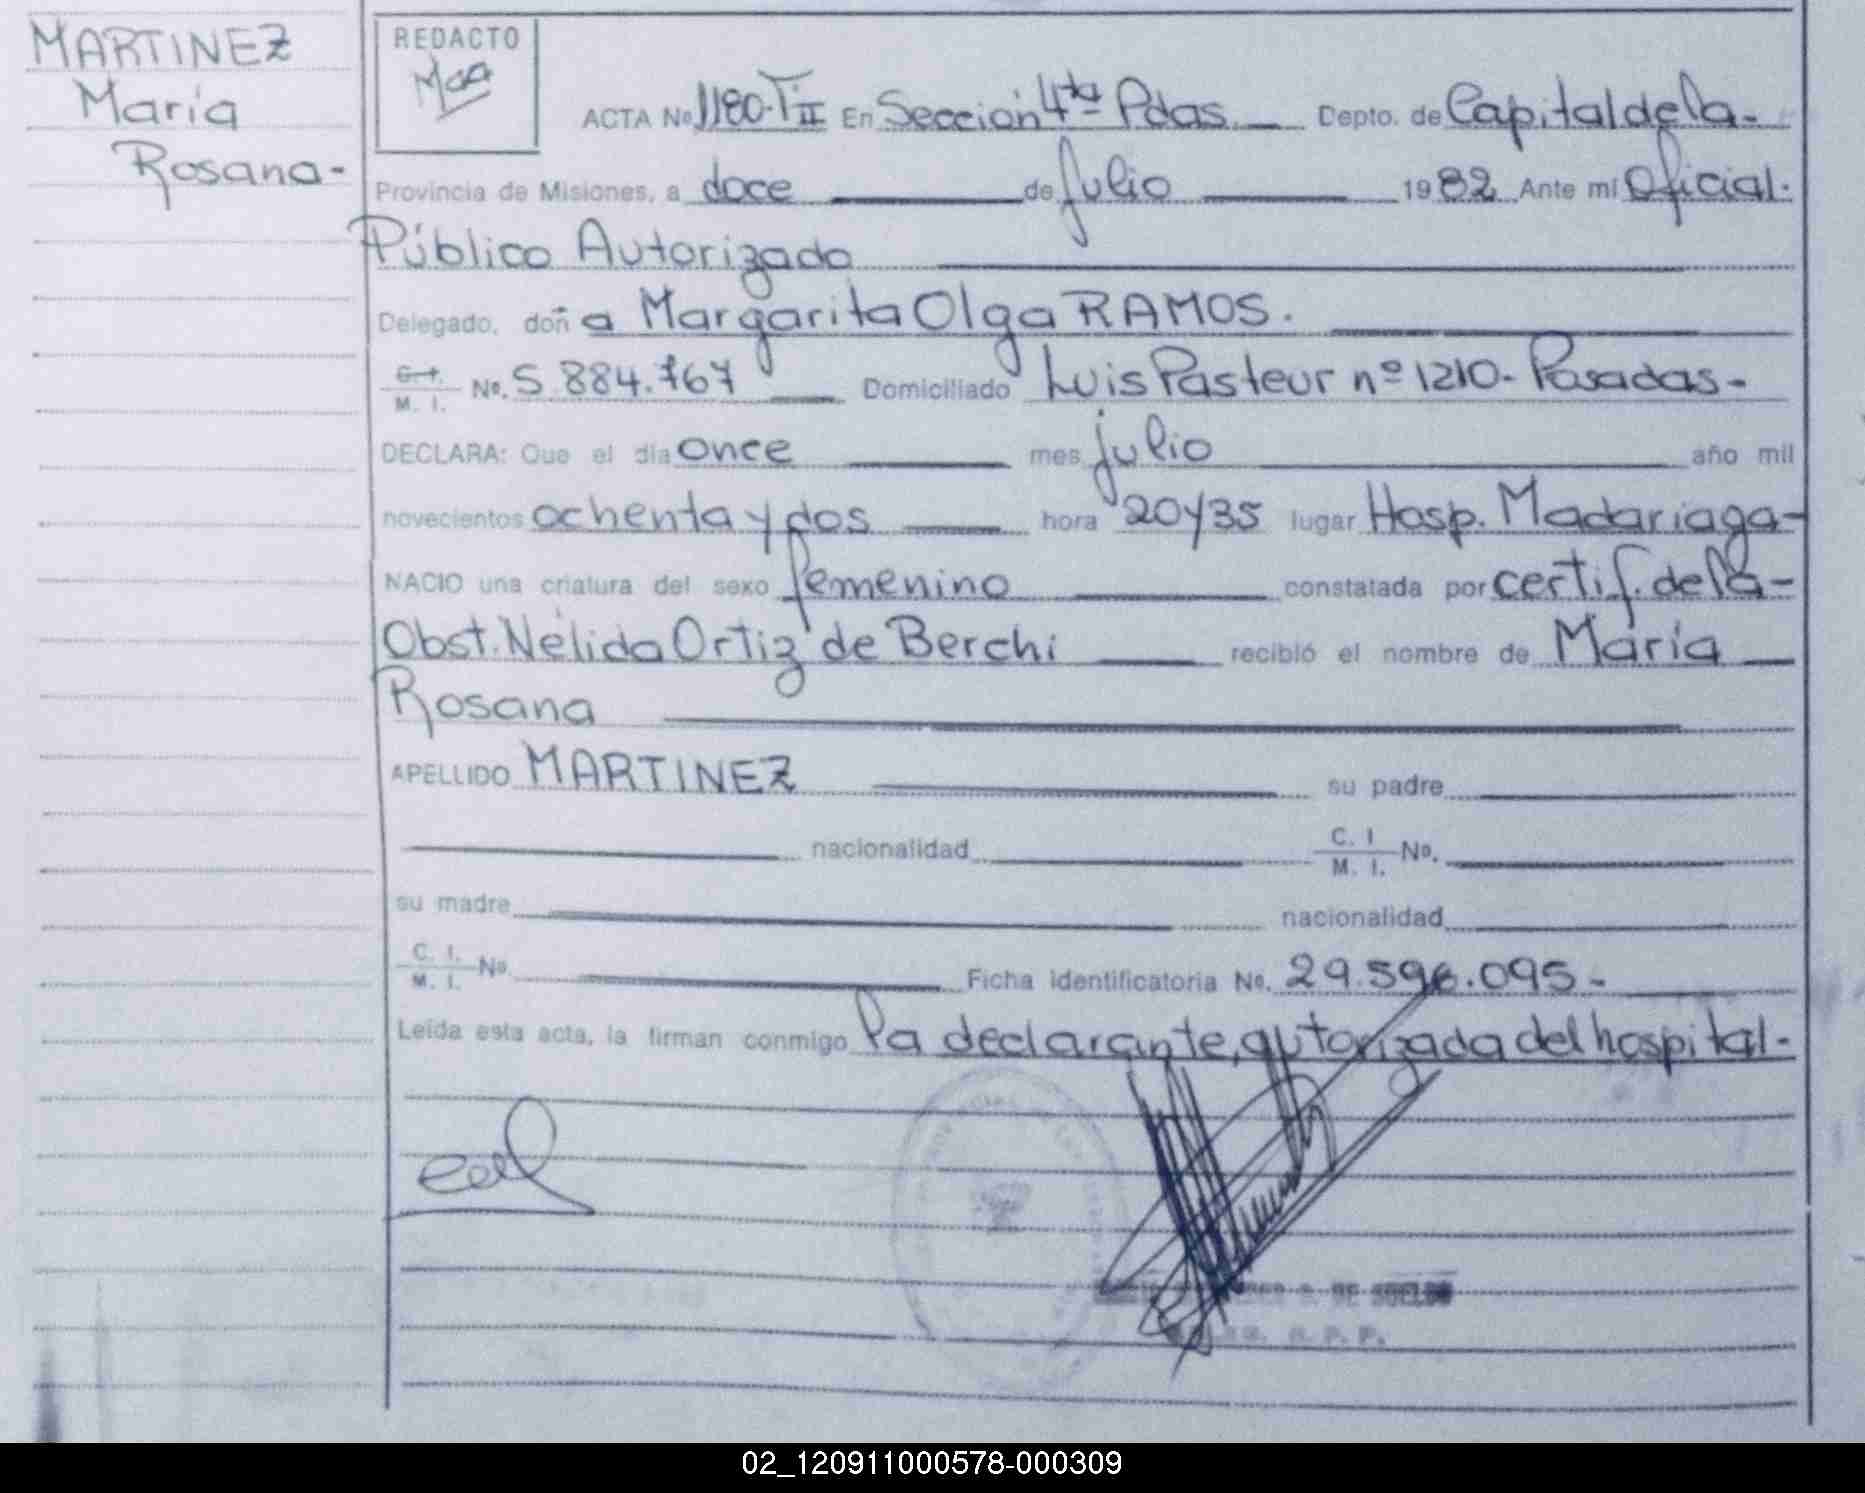 MARTINEZ
María
Rosana-
REDACTO
ACTA Nº 1180-TII En Sección 4ta Pdas. Depto. de Capital de la-
Provincia de Misiones, a doce de julio 1982 Ante mí Oficial.
Público Autorizado
Delegado, doña Margarita Olga RAMOS.
C. I. M. I. Nº. 5.884.767 Domiciliado Luis Pasteur nº 1210- Posadas-
DECLARA: Que el día once mes julio año mil
novecientos ochenta y dos hora 20y35 lugar Hosp. Madariaga-
NACIO una criatura del sexo femenino constatada por certif. de la-
Obst. Nélida Ortiz de Berchi recibió el nombre de María
Rosana
APELLIDO MARTINEZ su padre
nacionalidad C. I M. I. Nº.
su madre nacionalidad
C. I. M. I. Nº. Ficha identificatoria Nº. 29.596.095-
Leída esta acta, la firman conmigo la declarante, autorizada del hospital.-
02_120911000578-000309